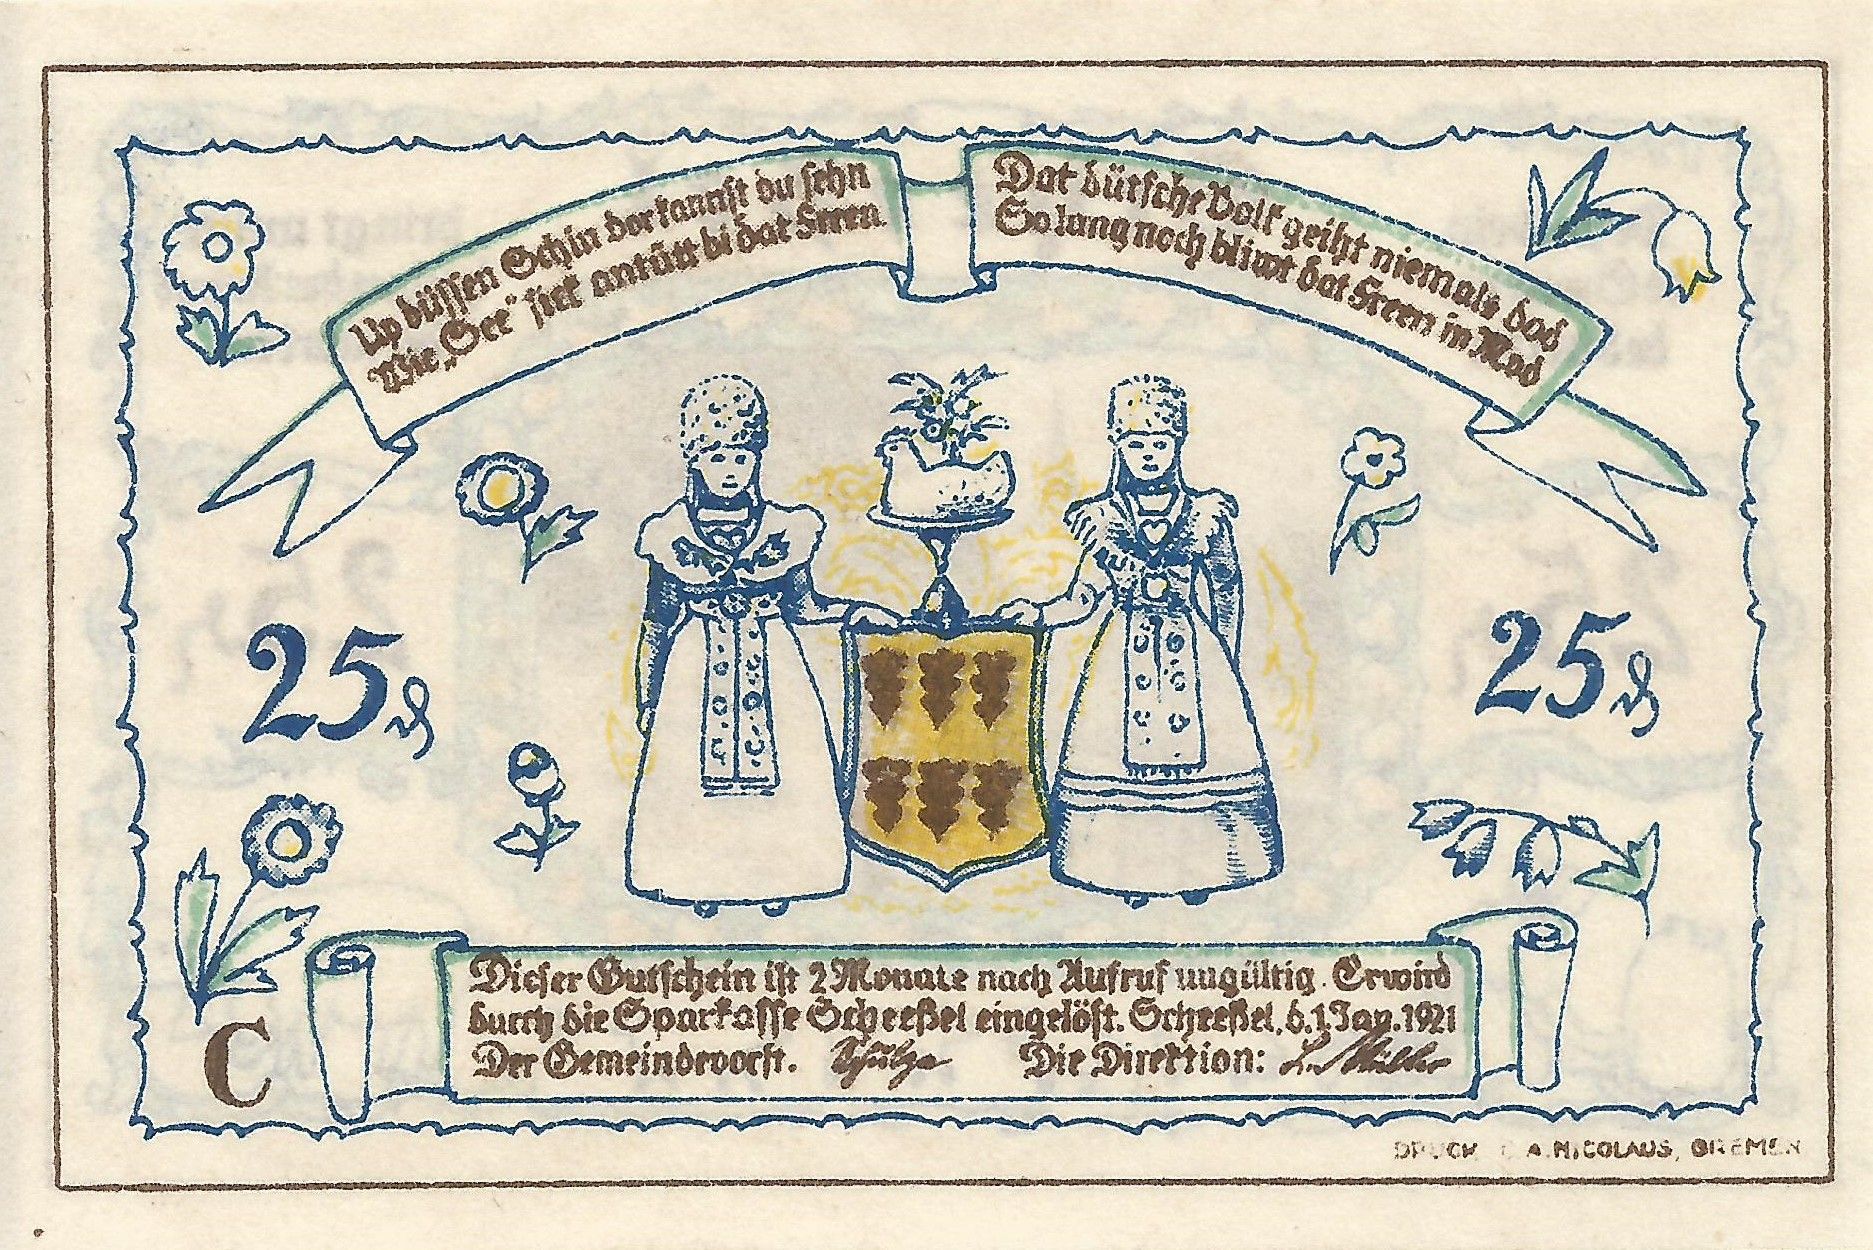 Up düssen Schin dor kannst du sehn
Wie „See" siek antütt bi dat Freen
Dat dütsche Volk geiht niemals dod
So lang noch bliwt dat Freen in Mod
25 ₰
25 ₰
Dieser Gutschein ist 2 Monate nach Aufruf ungültig. Er wird
durch die Sparkasse Scheeßel eingelöst. Scheeßel, d. 1. Jan. 1921
Der Gemeindevorst. Schulze Die Direktion: Müller
C
DRUCK C. A. NICOLAUS, BREMEN